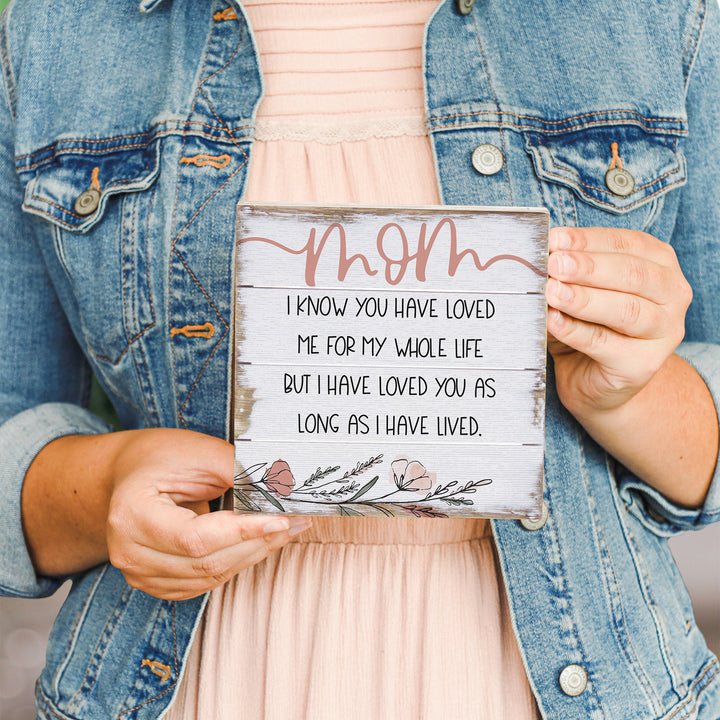 mom
I KNOW YOU HAVE LOVED
ME FOR MY WHOLE LIFE
BUT I HAVE LOVED YOU AS
LONG AS I HAVE LIVED.